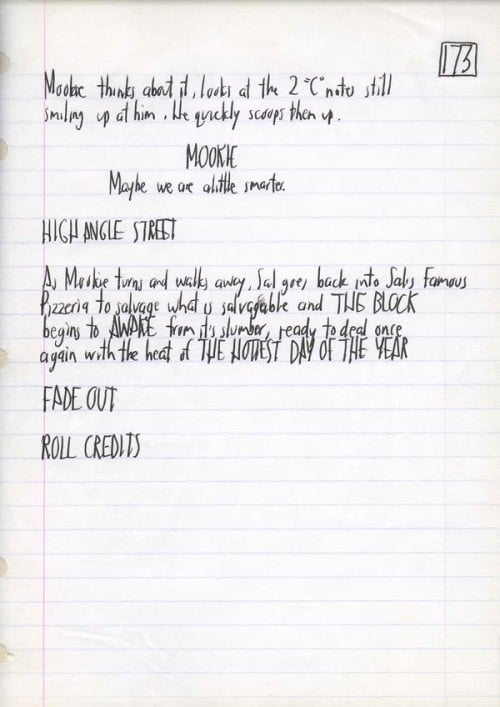 173
Mookie thinks about it, looks at the 2 "C" notes still
smiling up at him. He quickly scoops them up.
MOOKIE
Maybe we are a little smarter.
HIGH ANGLE STREET
As Mookie turns and walks away, Sal goes back into Sal's Famous
Pizzeria to salvage what is salvagable and THE BLOCK
begins to AWAKE from it's slumber, ready to deal once
again with the heat of THE HOTTEST DAY OF THE YEAR
FADE OUT
ROLL CREDITS